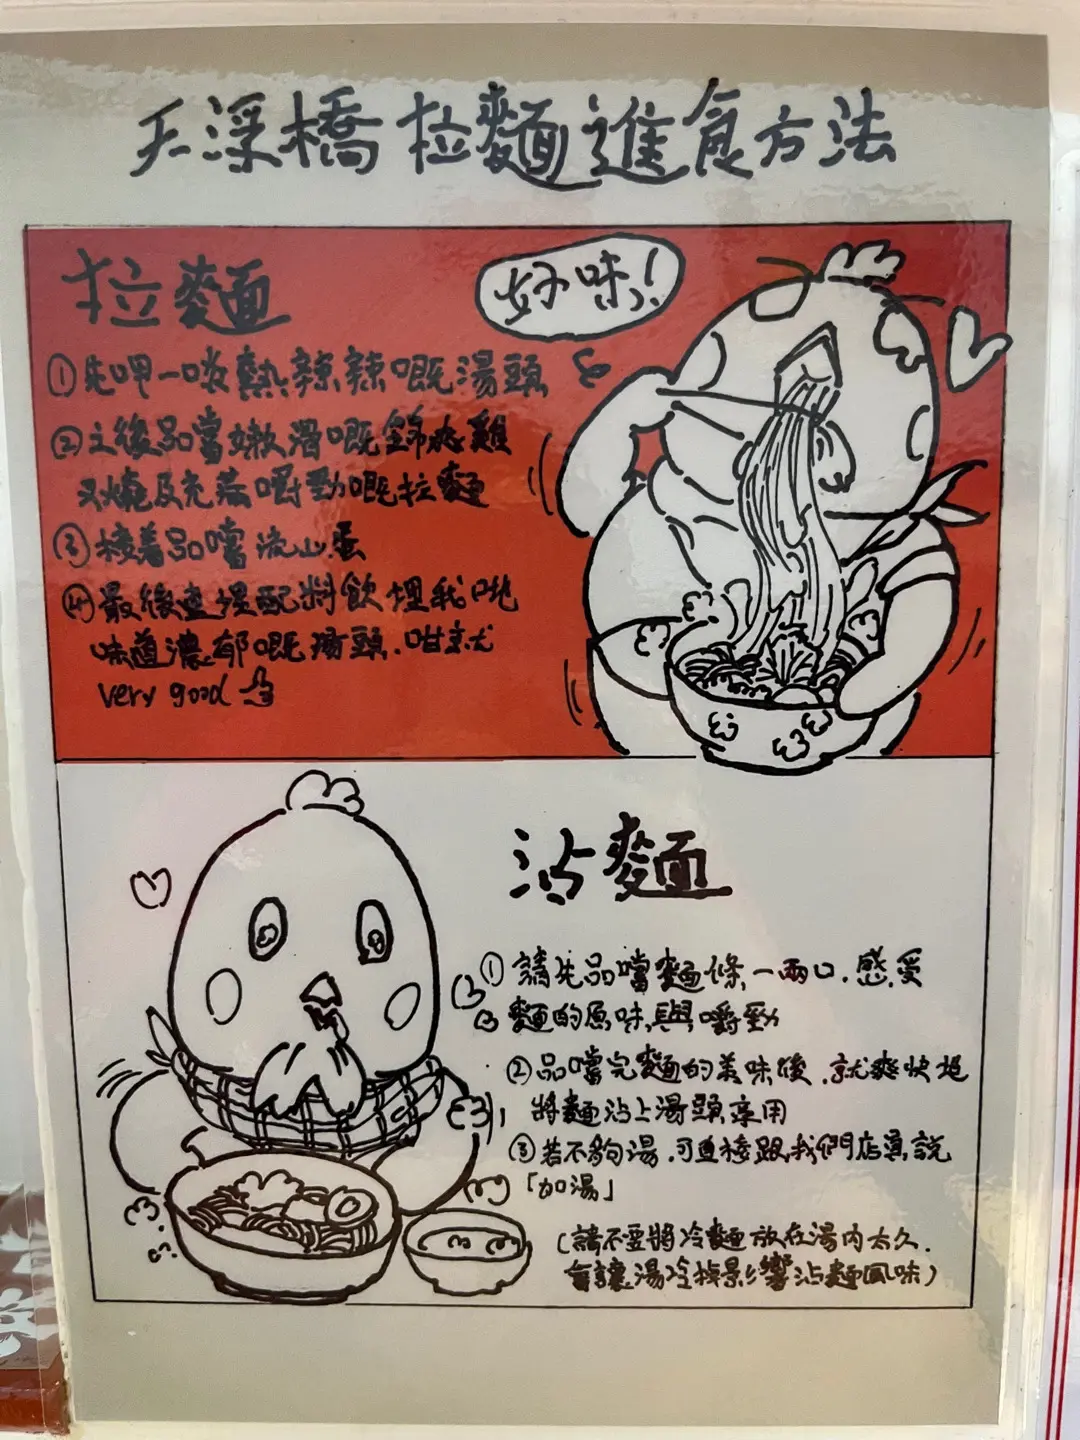 天浮橋拉麵進食方法
拉麵
好味!
①先呷一啖熱辣辣嘅湯頭
②之後品嚐嫩滑嘅錦爽雞
叉燒及充滿嚼勁嘅拉麵
③接着品嚐流心蛋
④最後連埋配料飲埋我哋
味道濃郁嘅湯頭.咁就
very good
沾麵
①請先品嚐麵條一兩口.感受
麵的原味與嚼勁
②品嚐完麵的美味後.就爽快地
將麵沾上湯頭享用
③若不夠湯.可直接跟我們店員說
「加湯」
(請不要將冷麵放在湯內太久.
會讓湯冷掉影響沾麵風味)